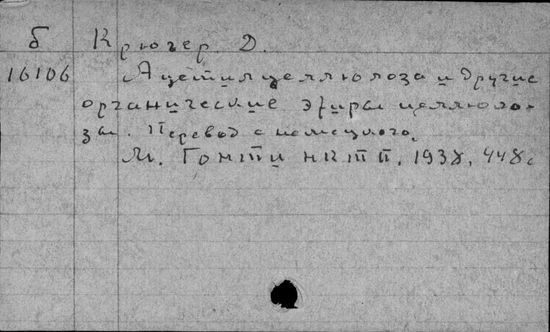 б Крюгер Д.
16106 Ацетилцеллюлоза и другие
органические эфиры целлюло-
зы. Перевод с немецкого.
М. Гонти нктп, 1938, 448 с